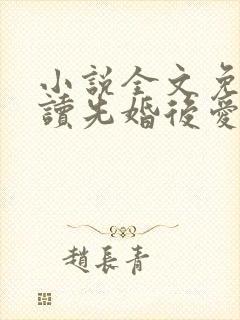 小説全文免
讀先婚後愛
趙長青